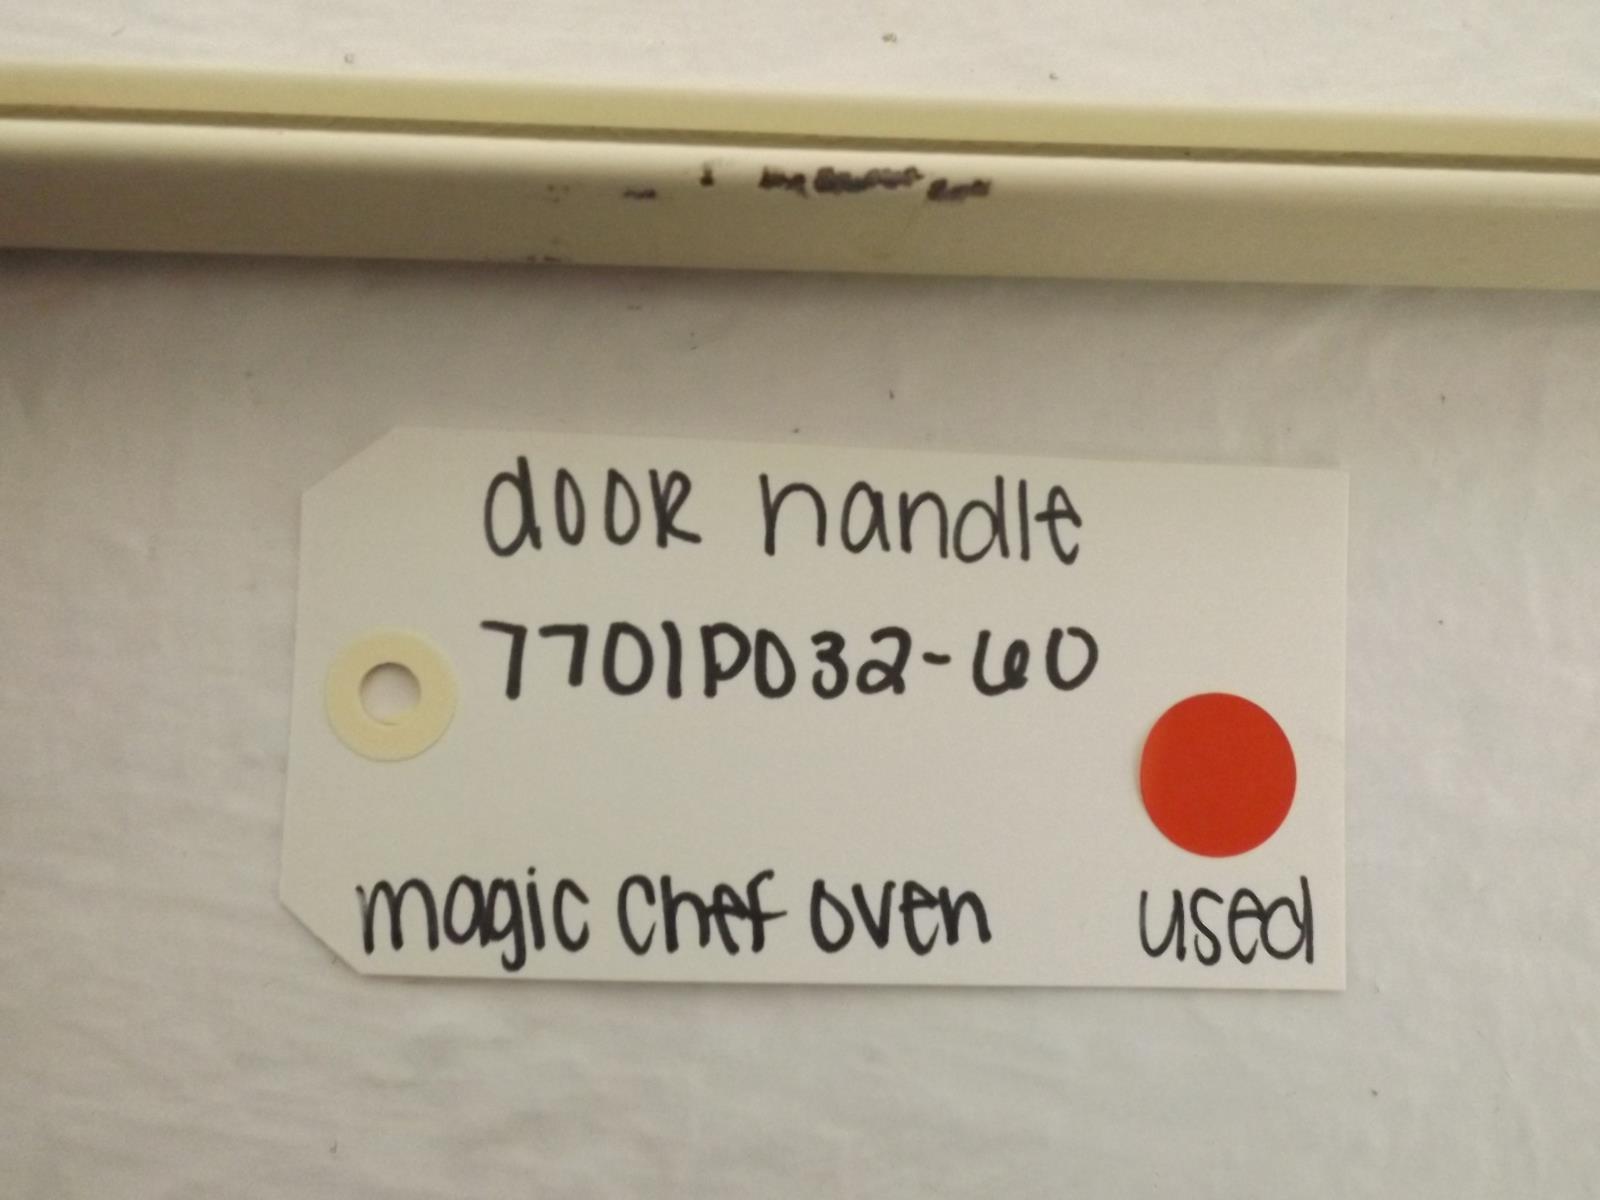 door handle
7701P032-60
magic chef oven used